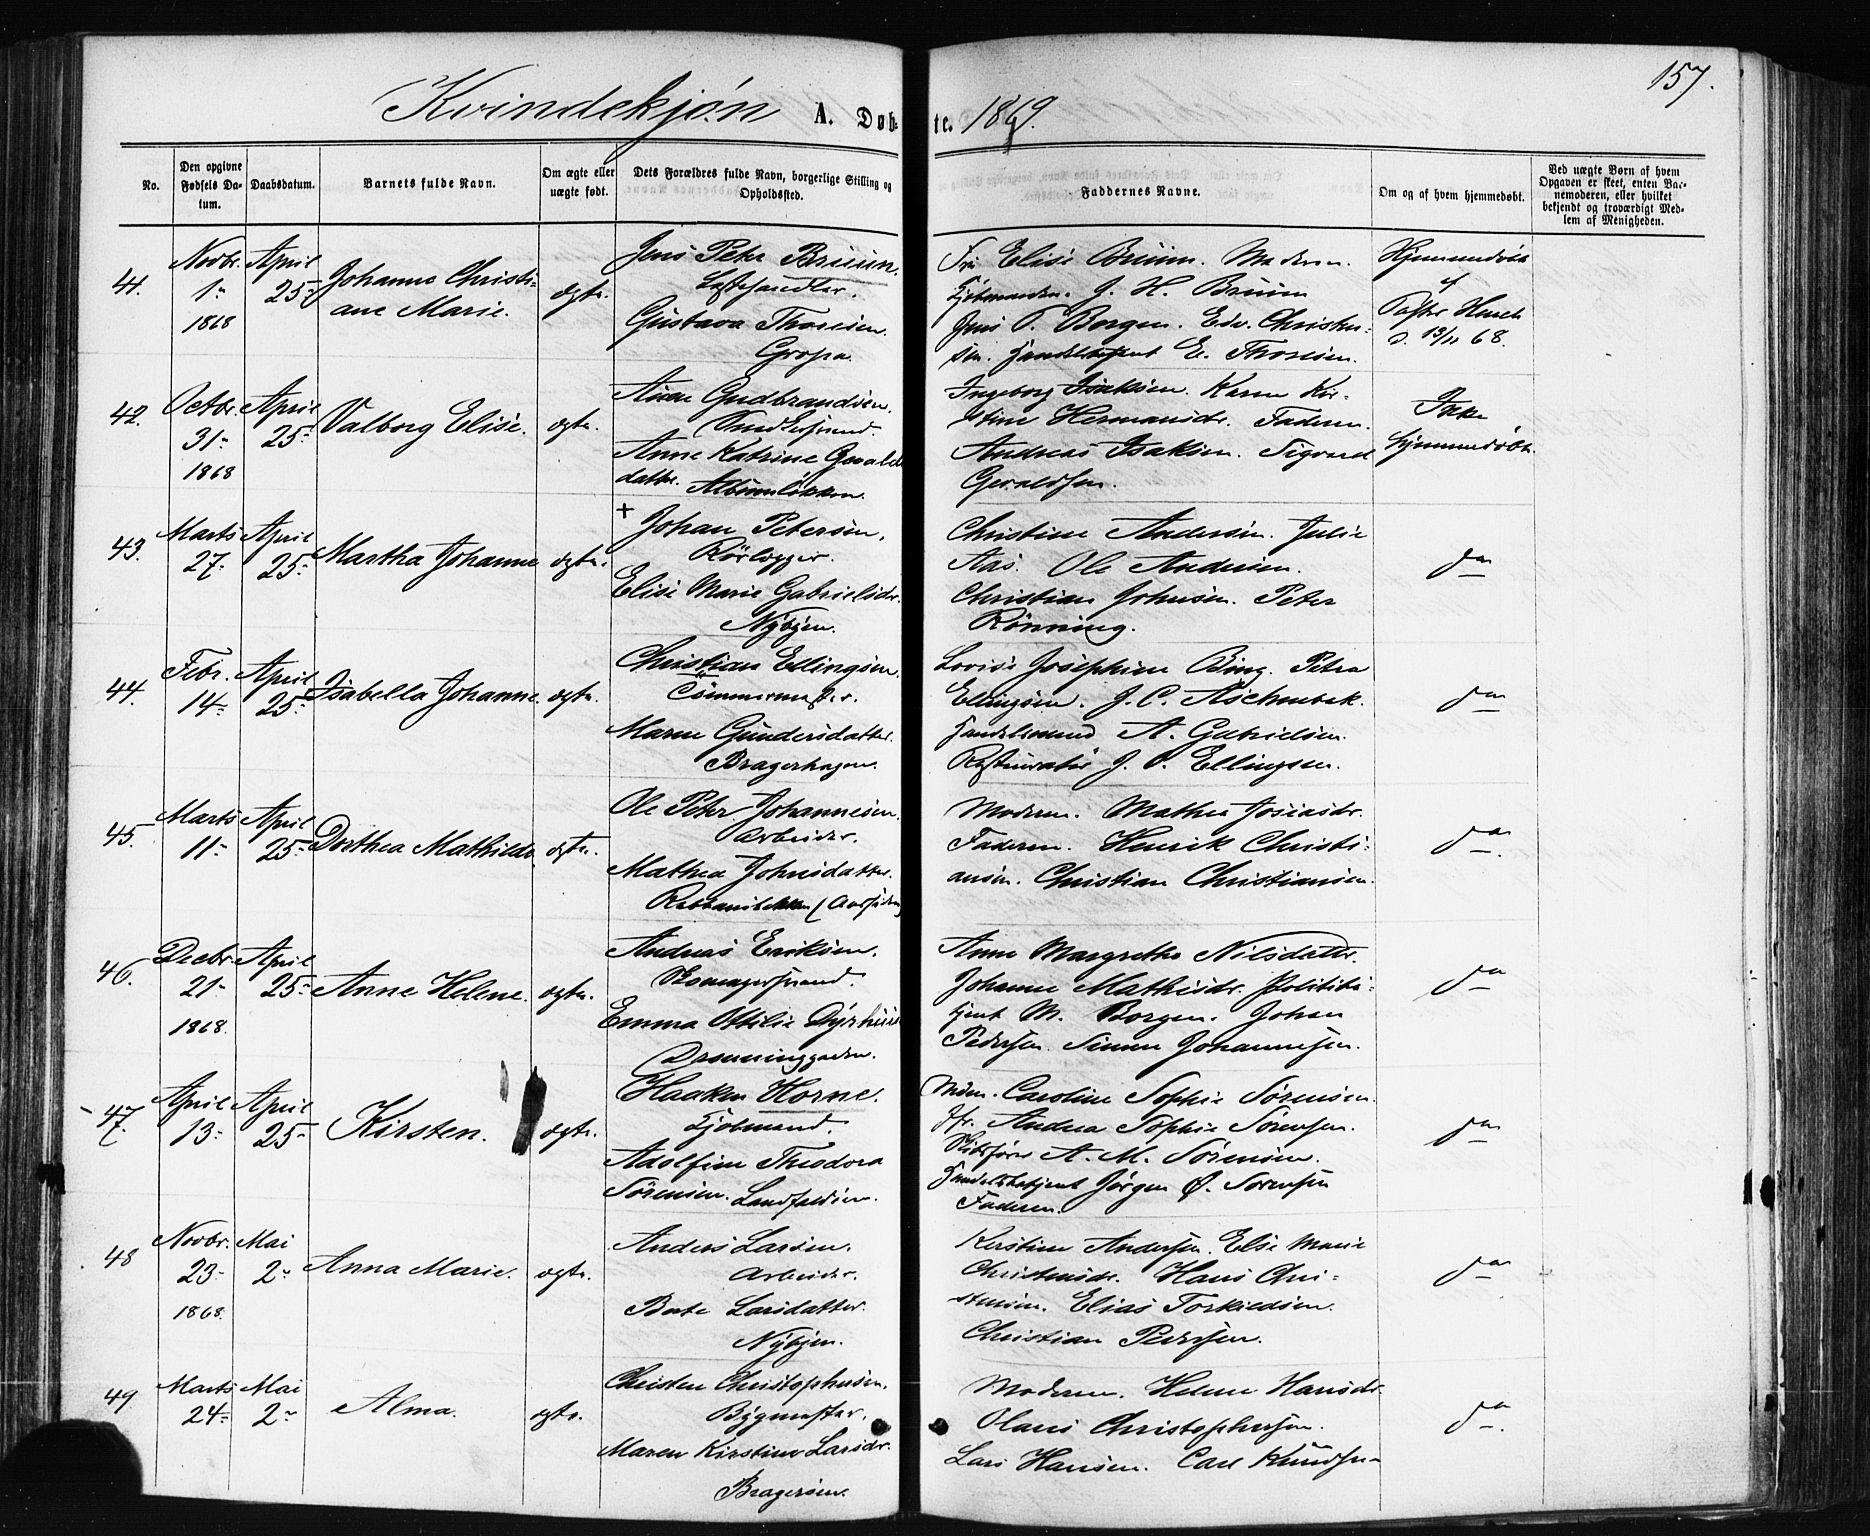 157.
Kvindekjøn A. Døb- te. 1869.
No.
Den opgivne Fødsels Da- tum.
Daabsdatum.
Barnets fulde Navn.
Om ægte eller uægte født.
Dets Forældres fulde Navn, borgerlige Stilling og Opholdssted.
Faddernes Navne.
Om og af hvem hjemmedøbt.
Ved uægte Børn af hvem Opgaven er skeet, enten Bar- nemoderen, eller hvilket bekjendt og troværdigt Med- lem af Menigheden.
41.
Novbr. 1 1868
April 25
Johanne Christi- ane Marie.
ægte.
Jens Peter Bruun.
Gustava Thoresen.
Elise Bruun. Moderen.
Kjøbmanden. J. H. Bruun
Jens P. Borgen. Edv. Christen-
sen. Handelsbetjent E. Thoresen.
Hjemmedøbt
af
13/11 68.
42.
Octbr. 31 1868
April 25
Valborg Elise.
ægte.
Gudbrandsen.
Anne Katrine Gerals
datter.
Ingeborg Isaksen. Karen Kir-
stine Hermansdr. Faderen.
Andreas Isaksen. Sigvard
Geraldsen.
Ikke
hjemmedøbt.
43.
Marts 27
April 25
Martha Johanne
ægte.
+ Johan Petersen,
Rørlegger.
Elise Marie Gabrielsdr.
Nybyen.
Christine Andersen. Julie
Aas. Ole Andersen.
Christian Johnsen. Peter
Rønning.
do
44.
Febr. 14
April 25
Isabella Johanne.
ægte.
Christian Ellingsen.
Tømmermester.
Maren Gundersdatter.
Bragerhagen.
Lovise Josephine Bing. Petra
Ellingsen. J. C. Aschenbek.
Handelsmand A. Gabrielsen.
Restauratør J. P. Ellingsen.
do
45.
Marts 11
April 25
Dorthea Mathilde
ægte.
Ole Peter Johannesen.
Arbeider.
Mathea Johnsdatter.
Moderen. Mathea Josiasdr.
Faderen. Henrik Christi-
ansen. Christian Christiansen.
do
46.
Decbr. 21 1868.
April 25
Anne Helene.
ægte.
Andreas Eriksen.
Skomagersvend.
Emma Ottilie Dyrhuus
Anne Margrethe Nilsdatter.
Johanne Mathisdr. Politibe-
tjent M. Borgen. Johan
Pedersen. Simen Johannesen.
do
47.
April 13
April 25
Kirsten.
ægte.
Haaken Horne.
Kjøbmand.
Adolfine Theodora
Sørensen. Landfaldøen.
Mdm. Caroline Sophie Sørensen.
Jfr. Andrea Sophie Sørensen.
Skibsfører A. M. Sørensen.
Handelsbetjent Jørgen Ø. Sørensen
Faderen.
do
48
Novbr. 23 1868.
Mai 2
Anna Marie.
ægte.
Anders Larsen.
Arbeider.
Berte Larsdatter.
Nybyen.
Kirstine Andersen. Else Marie
Christensdr. Hans Chri-
stensen. Elias Torkildsen.
Christian Pedersen.
do
49
Marts 24
Mai 2
Alma.
ægte.
Christen Christophersen.
Bygmester.
Maren Kirstine Larsdr.
Bragerøen.
Moderen. Helene Hansdr.
Olaus Christophersen.
Lars Hansen. Carl Knudsen
do